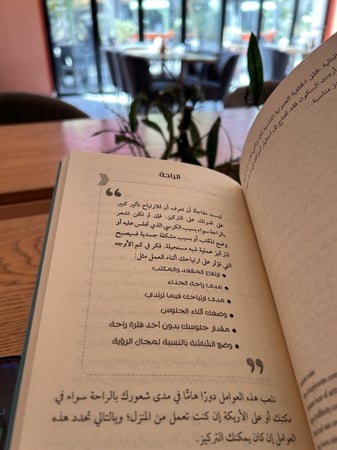 الراحة
ليست مفاجأة أن تعرف أن للارتياح تأثير كبير
على قدرتك على التركيز. فإن لم تكن تشعر
بالراحة سواء بسبب الكرسي الذي تجلس عليه أو
وضع المكتب أو بسبب مشكلة جسدية فسيصبح
التركيز عملية شبه مستحيلة. فكر في كم الأوجه
التي تؤثر على ارتياحك أثناء العمل مثل:
• ارتفاع المقعد والمكتب
• مدى راحة الحذاء
• مدى ارتياحك فيما ترتدي
• وضعك أثناء الجلوس
• مقدار جلوسك بدون أخذ فترة راحة
• وضع الشاشة بالنسبة لمجال الرؤية
تلعب هذه العوامل دورًا هامًا في مدى شعورك بالراحة سواء في
مكتبك أو على الأريكة إن كنت تعمل من المنزل؛ وبالتالي تحدد هذه
العوامل إن كان يمكنك التركيز.